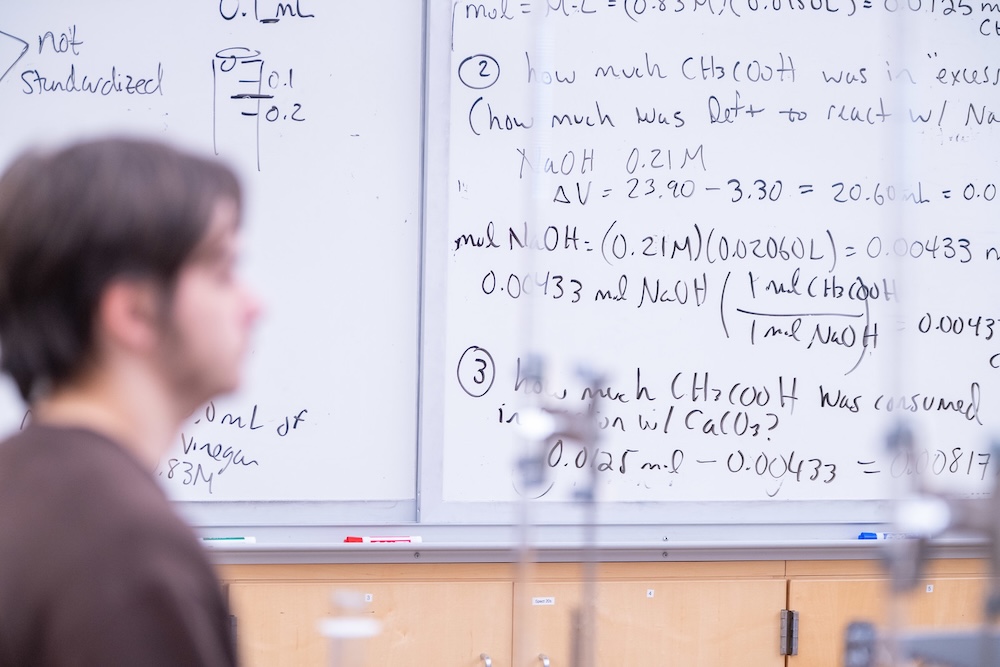 0.1 mL
not
standardized
0
0.1
0.2
.0 mL of
Vinegar
.83M
mol = M·L = (0.83M)(0.0150L) = 0.0125 m
② how much CH3COOH was in "excess
(how much was left to react w/ Na
NaOH 0.21M
ΔV = 23.90 - 3.30 = 20.60 mL = 0.0
mol NaOH = (0.21M)(0.02060L) = 0.00433 m
0.00433 mol NaOH (1 mol CH3COOH
1 mol NaOH) = 0.0043
③ how much CH3COOH was consumed
in w/ CaCO3?
0.0125 mol - 0.00433 = 0.00817